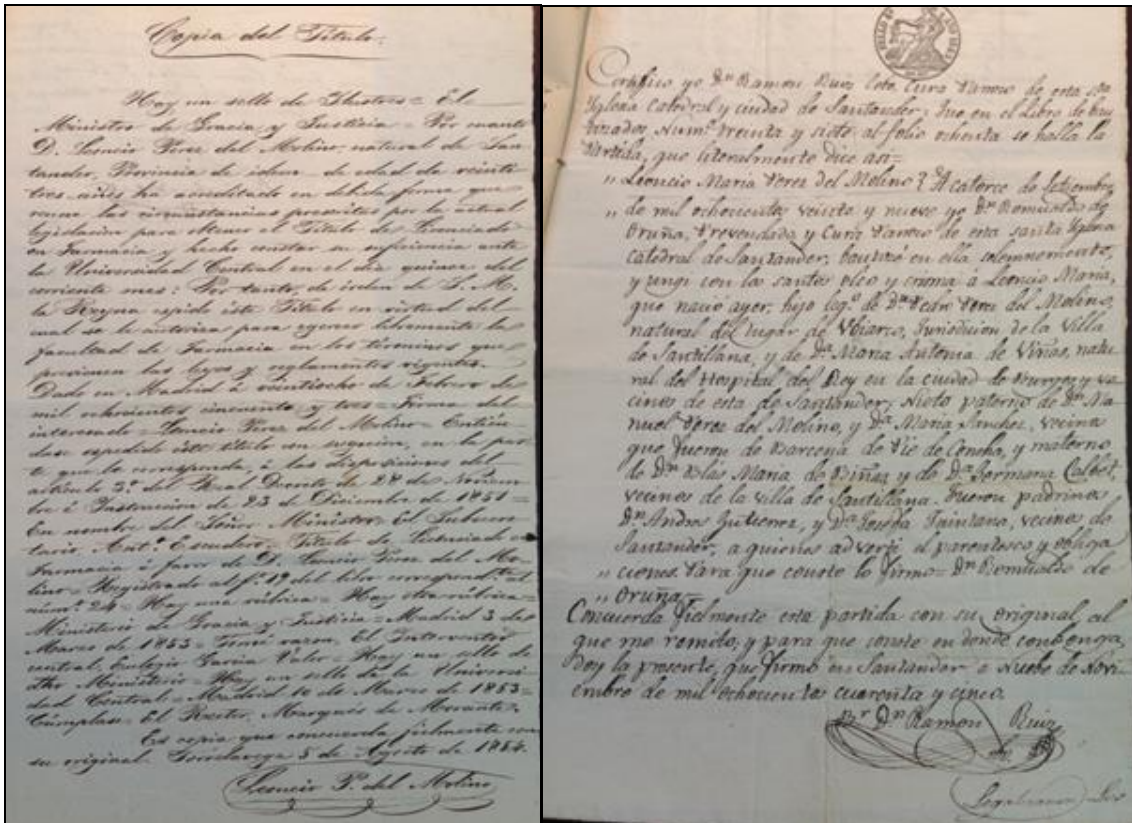 Copia del Título.
Hay un sello de Ilustres = El
Ministro de Gracia y Justicia = Por cuanto
D. Leoncio Perez del Molino, natural de San
tander, Provincia de idem de edad de veinti
tres años ha acreditado en debida forma que
reune las circunstancias prescritas por la actual
legislacion para obtener el Título de Licenciado
en Farmacia y hecho constar su suficiencia ante
la Universidad Central en el dia quince del
corriente mes: Por tanto, de órden de S. M.
la Reyna expido éste Título en virtud del
cual se le autoriza para egercer libremente la
facultad de Farmacia en los términos que
previenen las leyes y reglamentos vigentes.
Dado en Madrid á veintiocho de Febrero de
mil ochocientos cincuenta y tres = Firma del
interesado = Leoncio Perez del Molino = Entién
dase expedido éste título con sugecion, en la par
te que le corresponda, á las disposiciones del
artículo 3º del Real Decreto de 28 de Noviem
bre é Instruccion de 23 de Diciembre de 1851 =
En nombre del Señor Ministro = El Subsecre
tario Antº Escudero = Título de Licenciado en
Farmacia á favor de D. Leoncio Perez del Mo
lino = Registrado al fº 19 del libro correspond.te al
númº 24 = Hay una rúbrica = Hay otra rúbrica =
Ministerio de Gracia y Justicia = Madrid 3 de
Marzo de 1853 = Tomé razon, El Interventor
central, Eulogio Garcia = Hay un sello de
dho Ministerio = Hay un sello de la Universi
dad Central = Madrid 10 de Marzo de 1853 =
Cúmplase = El Rector, Marqués de Morante.
Es copia que concuerda fielmente con
su original. Torrelavega 5 de Agosto de 1854.
Leoncio P. del Molino
Certifico yo Dn Ramon Ruiz Cura Parroco de esta Sta
Iglesia Catedral y ciudad de Santander: que en el Libro de bau
tizados, Numº treinta y siete, al folio ochenta se halla la
Partida, que literalmente dice asi =
„ Leoncio Maria Perez del Molino } A catorce de Setiembre
„ de mil ochocientos veinte y nueve yo Dn Romualdo de
Oruña, Prevendado, y Cura Parroco de esta santa Yglesia
Catedral de Santander, bautizé en ella solemnemente,
y ungí con los santos oleo y crisma á Leoncio Maria,
que nació ayer: hijo legº de Dn Perez del Molino,
natural del Lugar de Viharco, Jurisdicion de la Villa
de Santillana, y de Dª Maria Antonia de Viñas, natu
ral del Hospital del Rey en la ciudad de Burgos y ve
cinos de esta de Santander: Nieto paterno de Dn Ma
nuel Perez del Molino, y Dª Maria Sanchez, vecinos
que fueron de Barcena de Pie de Concha, y materno
de Dn Blas Maria de Viñas y de Dª Germana Calbet,
vecinos de la villa de Santillana. Fueron padrinos
Dn Andres Gutierrez, y Dª Josefa Quintana, vecinos de
Santander, a quienes adverti el parentesco y obliga
„ ciones. Para que conste lo firmo = Dn Romualdo de
„ Oruña =
Concuerda fielmente esta partida con su original, al
que me remito; y para que conste en donde conbenga,
doy la presente, que firmo en Santander a Nuebe de Novi
embre de mil ochocientos cuarenta y cinco.
Dn Ramon Ruiz